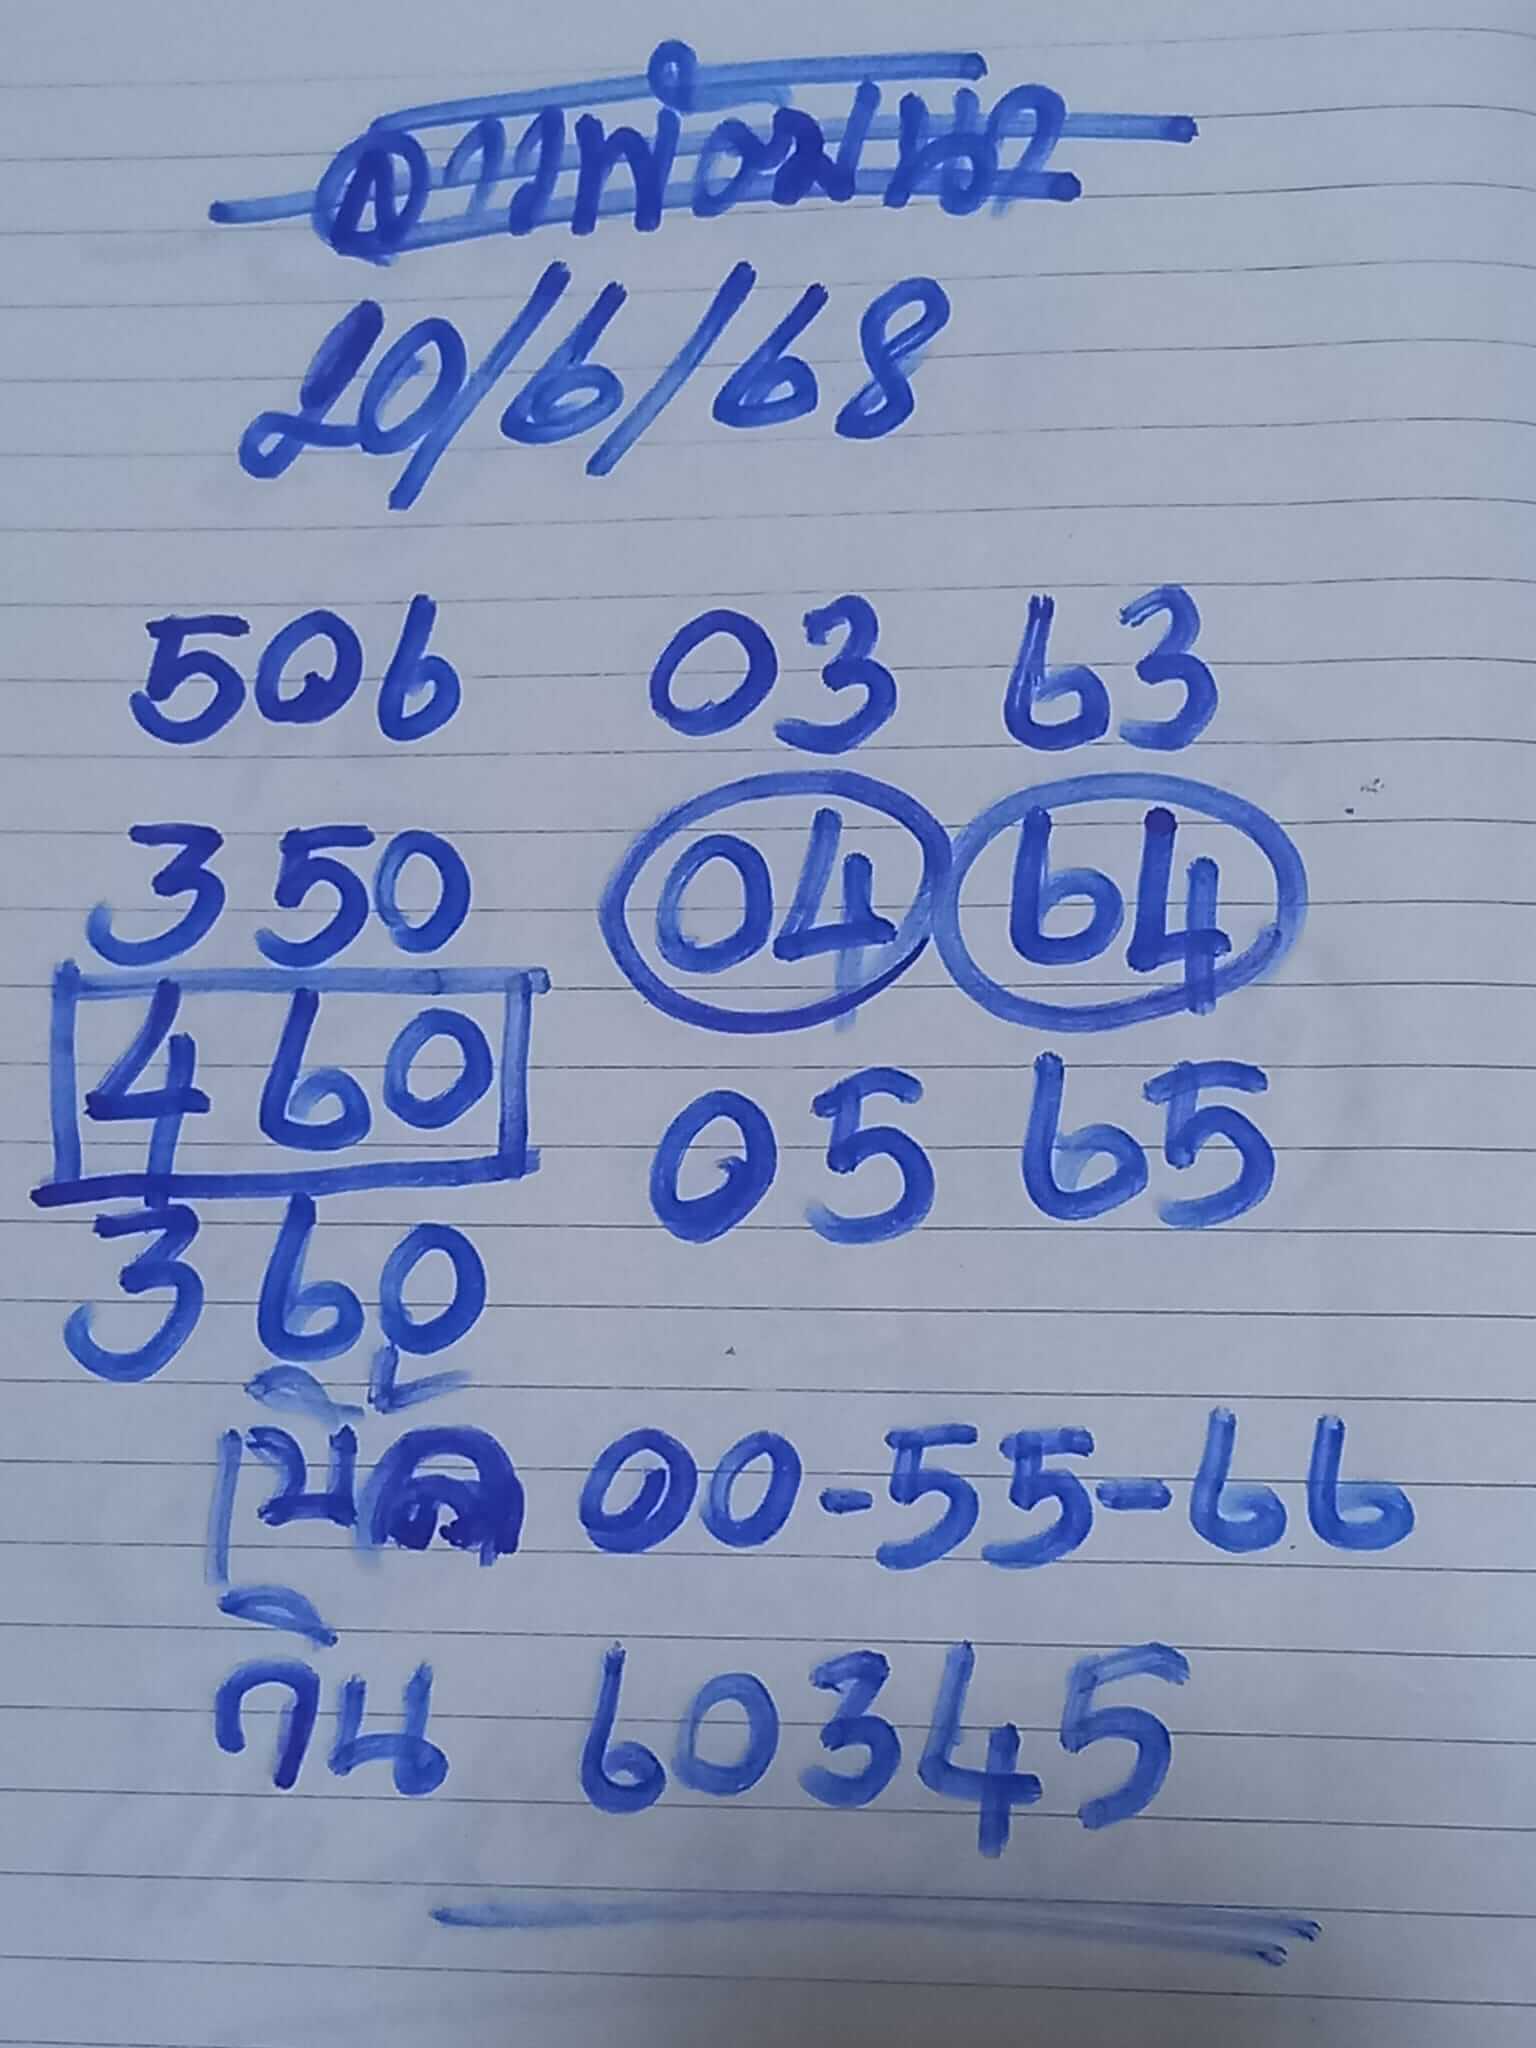 ลาวพัฒนา
20/6/68
506 03 63
350 04 64
460
05 65
360
เบิ้ล 00-55-66
กิน 60345